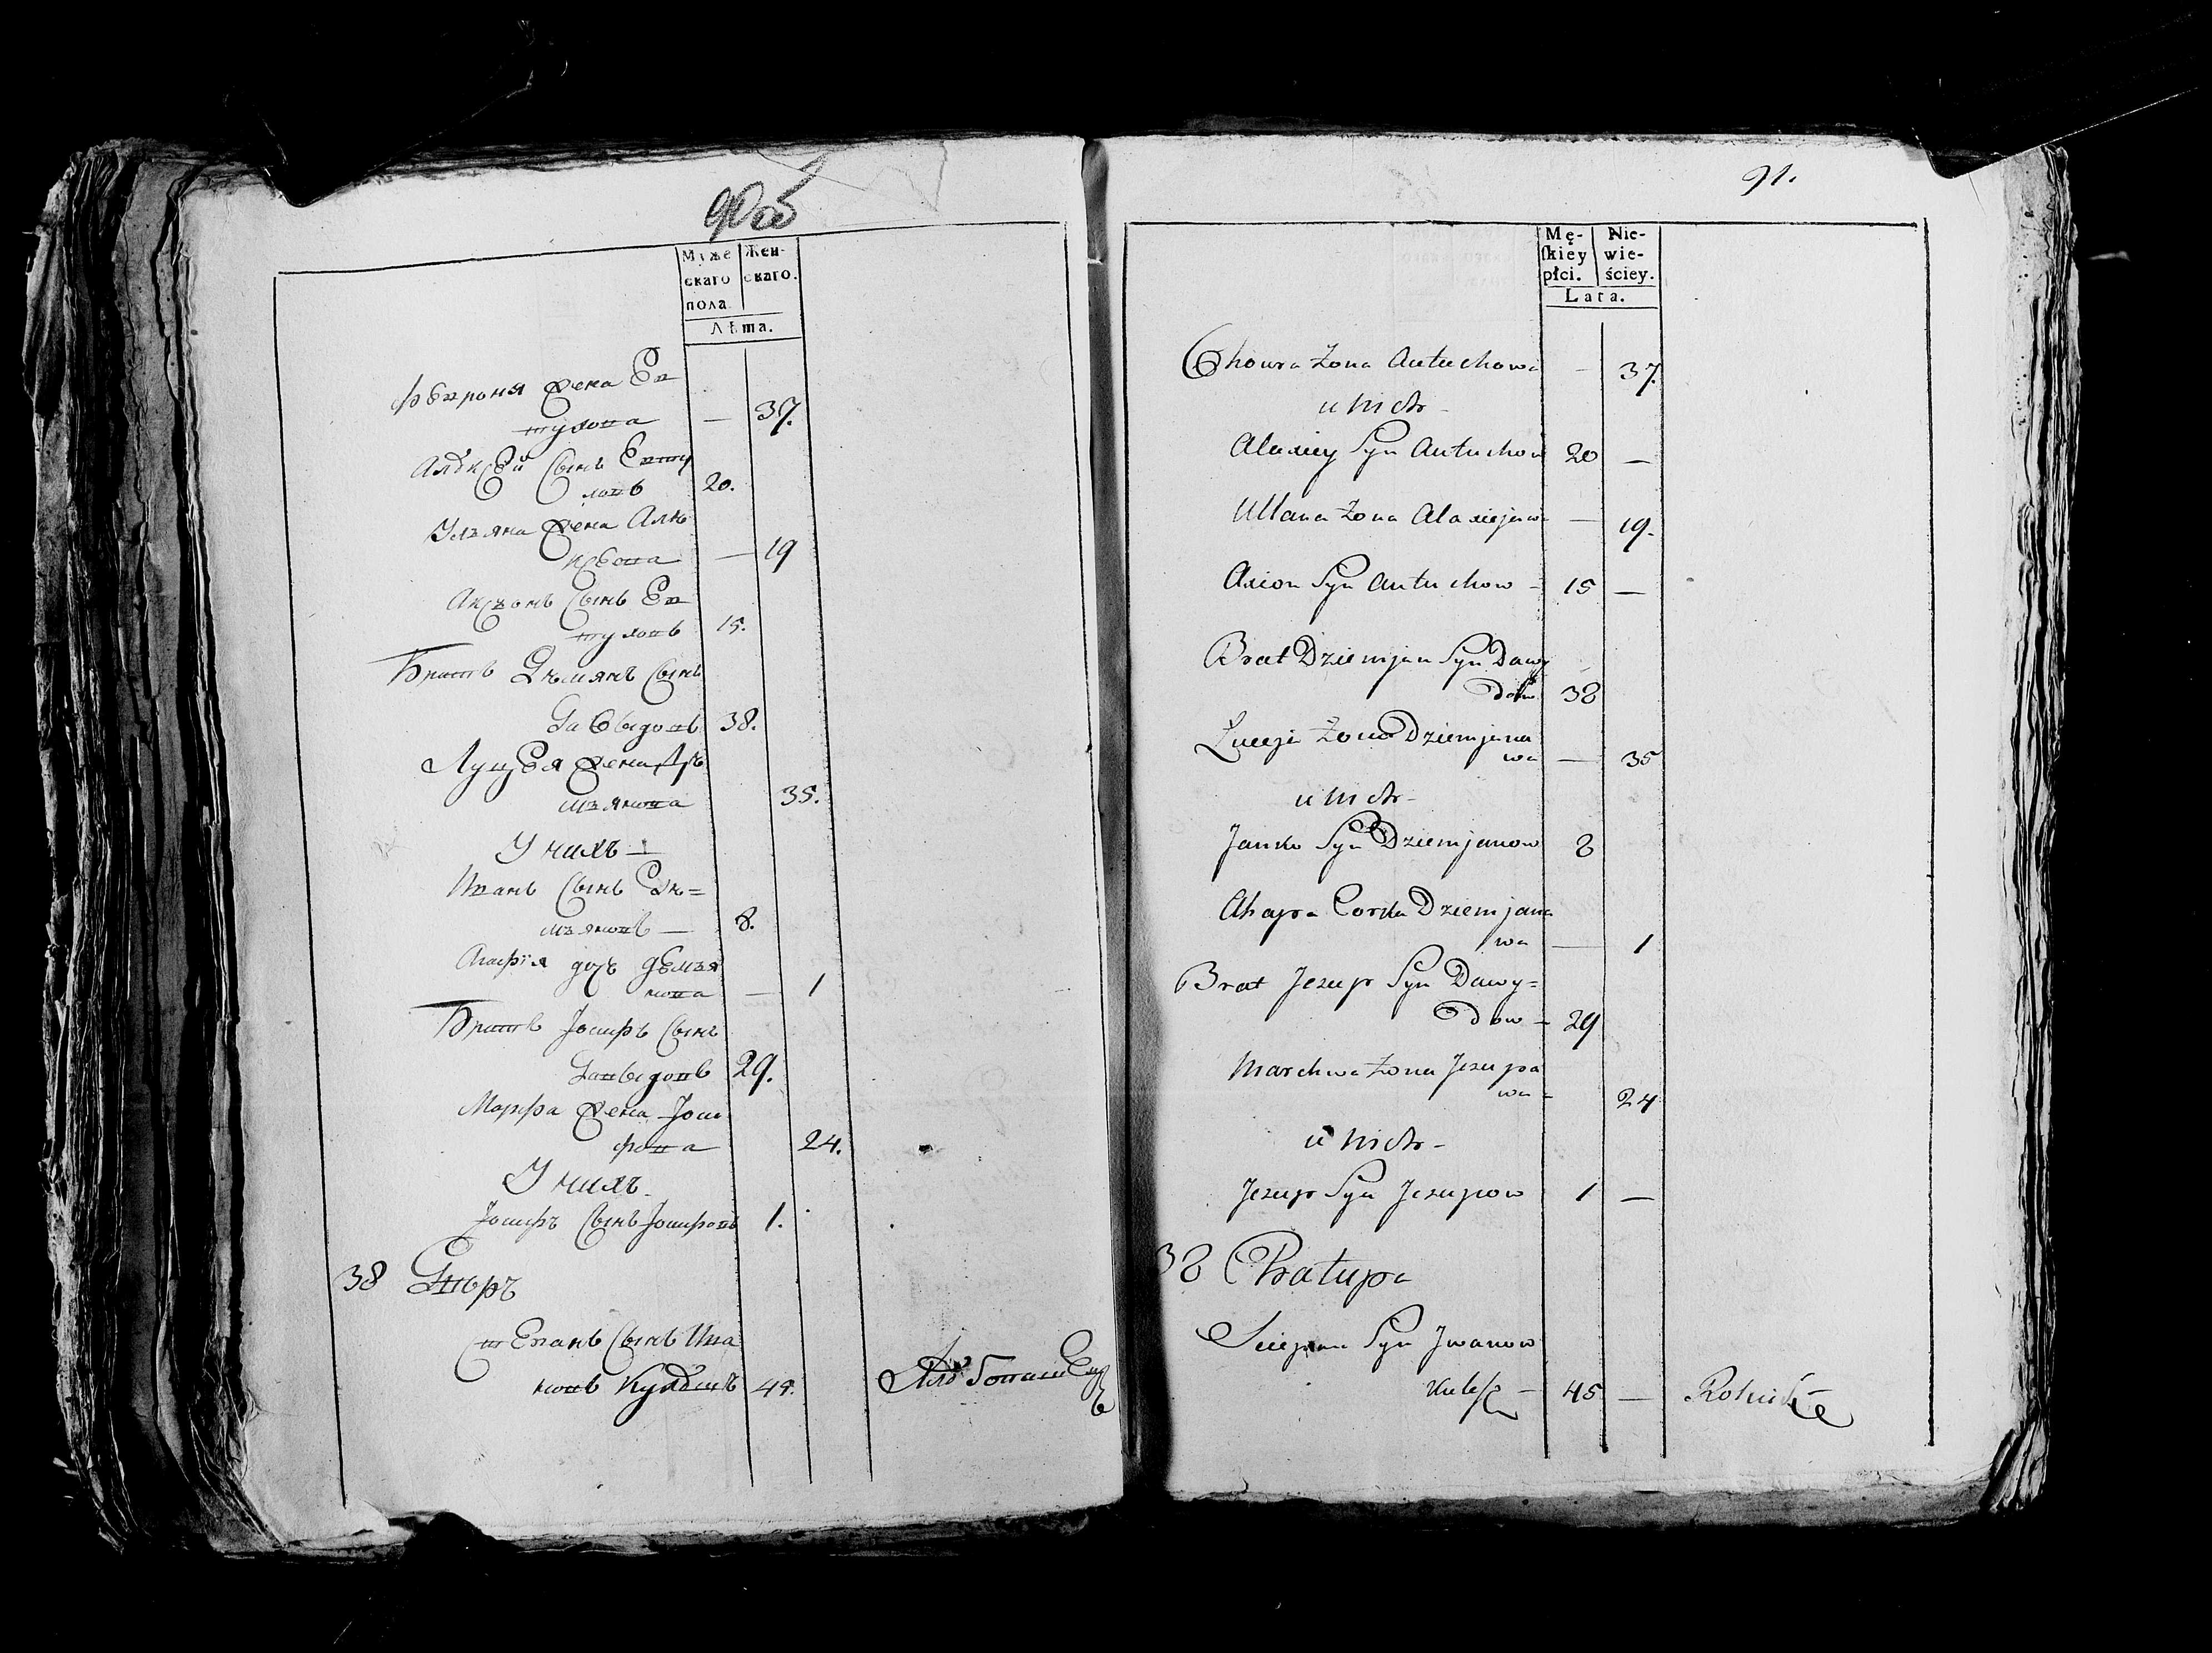 90об
Муже
скаго
пола
Жен-
скаго.
Лѣта.
Феврония жена Ев
тухова — 37.
Алексей сынъ Евту
ховъ 20.
Ульяна жена Алек
сѣева — 19
Аксѣонъ сынъ Ев
туховъ 15.
Братъ Демянъ сынъ
Давыдовъ 38.
Луцея жена Де
мьянова 35.
У нихъ —
Иванъ сынъ Де=
мьяновъ — 8.
Агафія дочь Демья
нова — 1
Братъ Іосифъ сынъ
Давыдовъ 29.
Марфа жена Іоси
фова 24.
У нихъ
Іосифъ сынъ Іосифовъ 1.
38 Дворъ
Степанъ сынъ Ива
новъ Кулешъ 45.
91.
Mę-
skiey
płci.
Nie-
wie-
ściey.
Lata.
Chowra Żona Antuchowa — 37.
u nich -
Alaxiey Syn Antuchow 20 —
Ullana Żona Alaxiejewa — 19.
Axion Syn Antuchow - 15 —
Brat Dziemjan Syn Dawy
dow 38
Łuceja Żona Dziemjana
wa — 35
u nich -
Janko Syn Dziemjanow 8
Ahapa Corka Dziemjana
wa — 1
Brat Jezup Syn Dawy=
dow - 29
Marchwa Żona Jezupa
wa - 24
u nich -
Jezup Syn Jezupow 1 —
38 Chatupa
Sciepan Syn Jwanow
Kulesz - 45 —